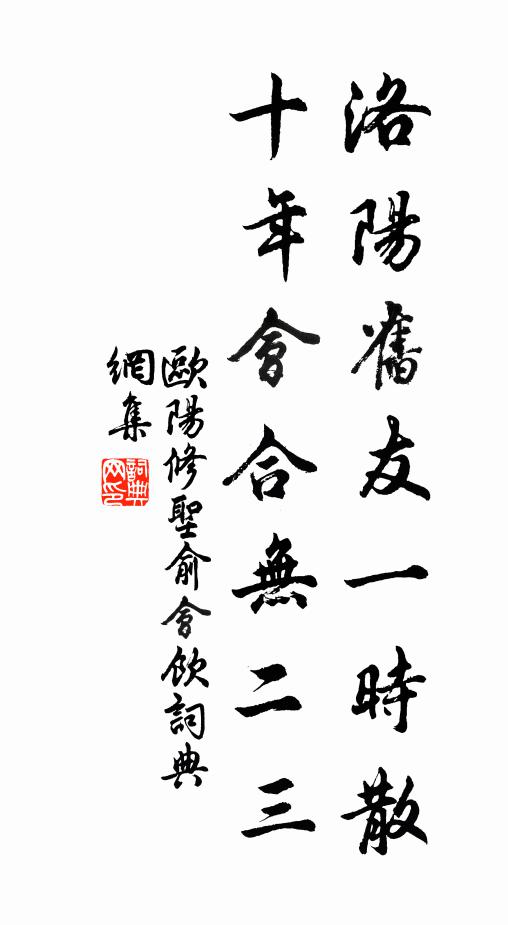 洛陽舊友一時散
十年會合無二三
歐陽修聖俞會飲詞典
網集
詞典網印